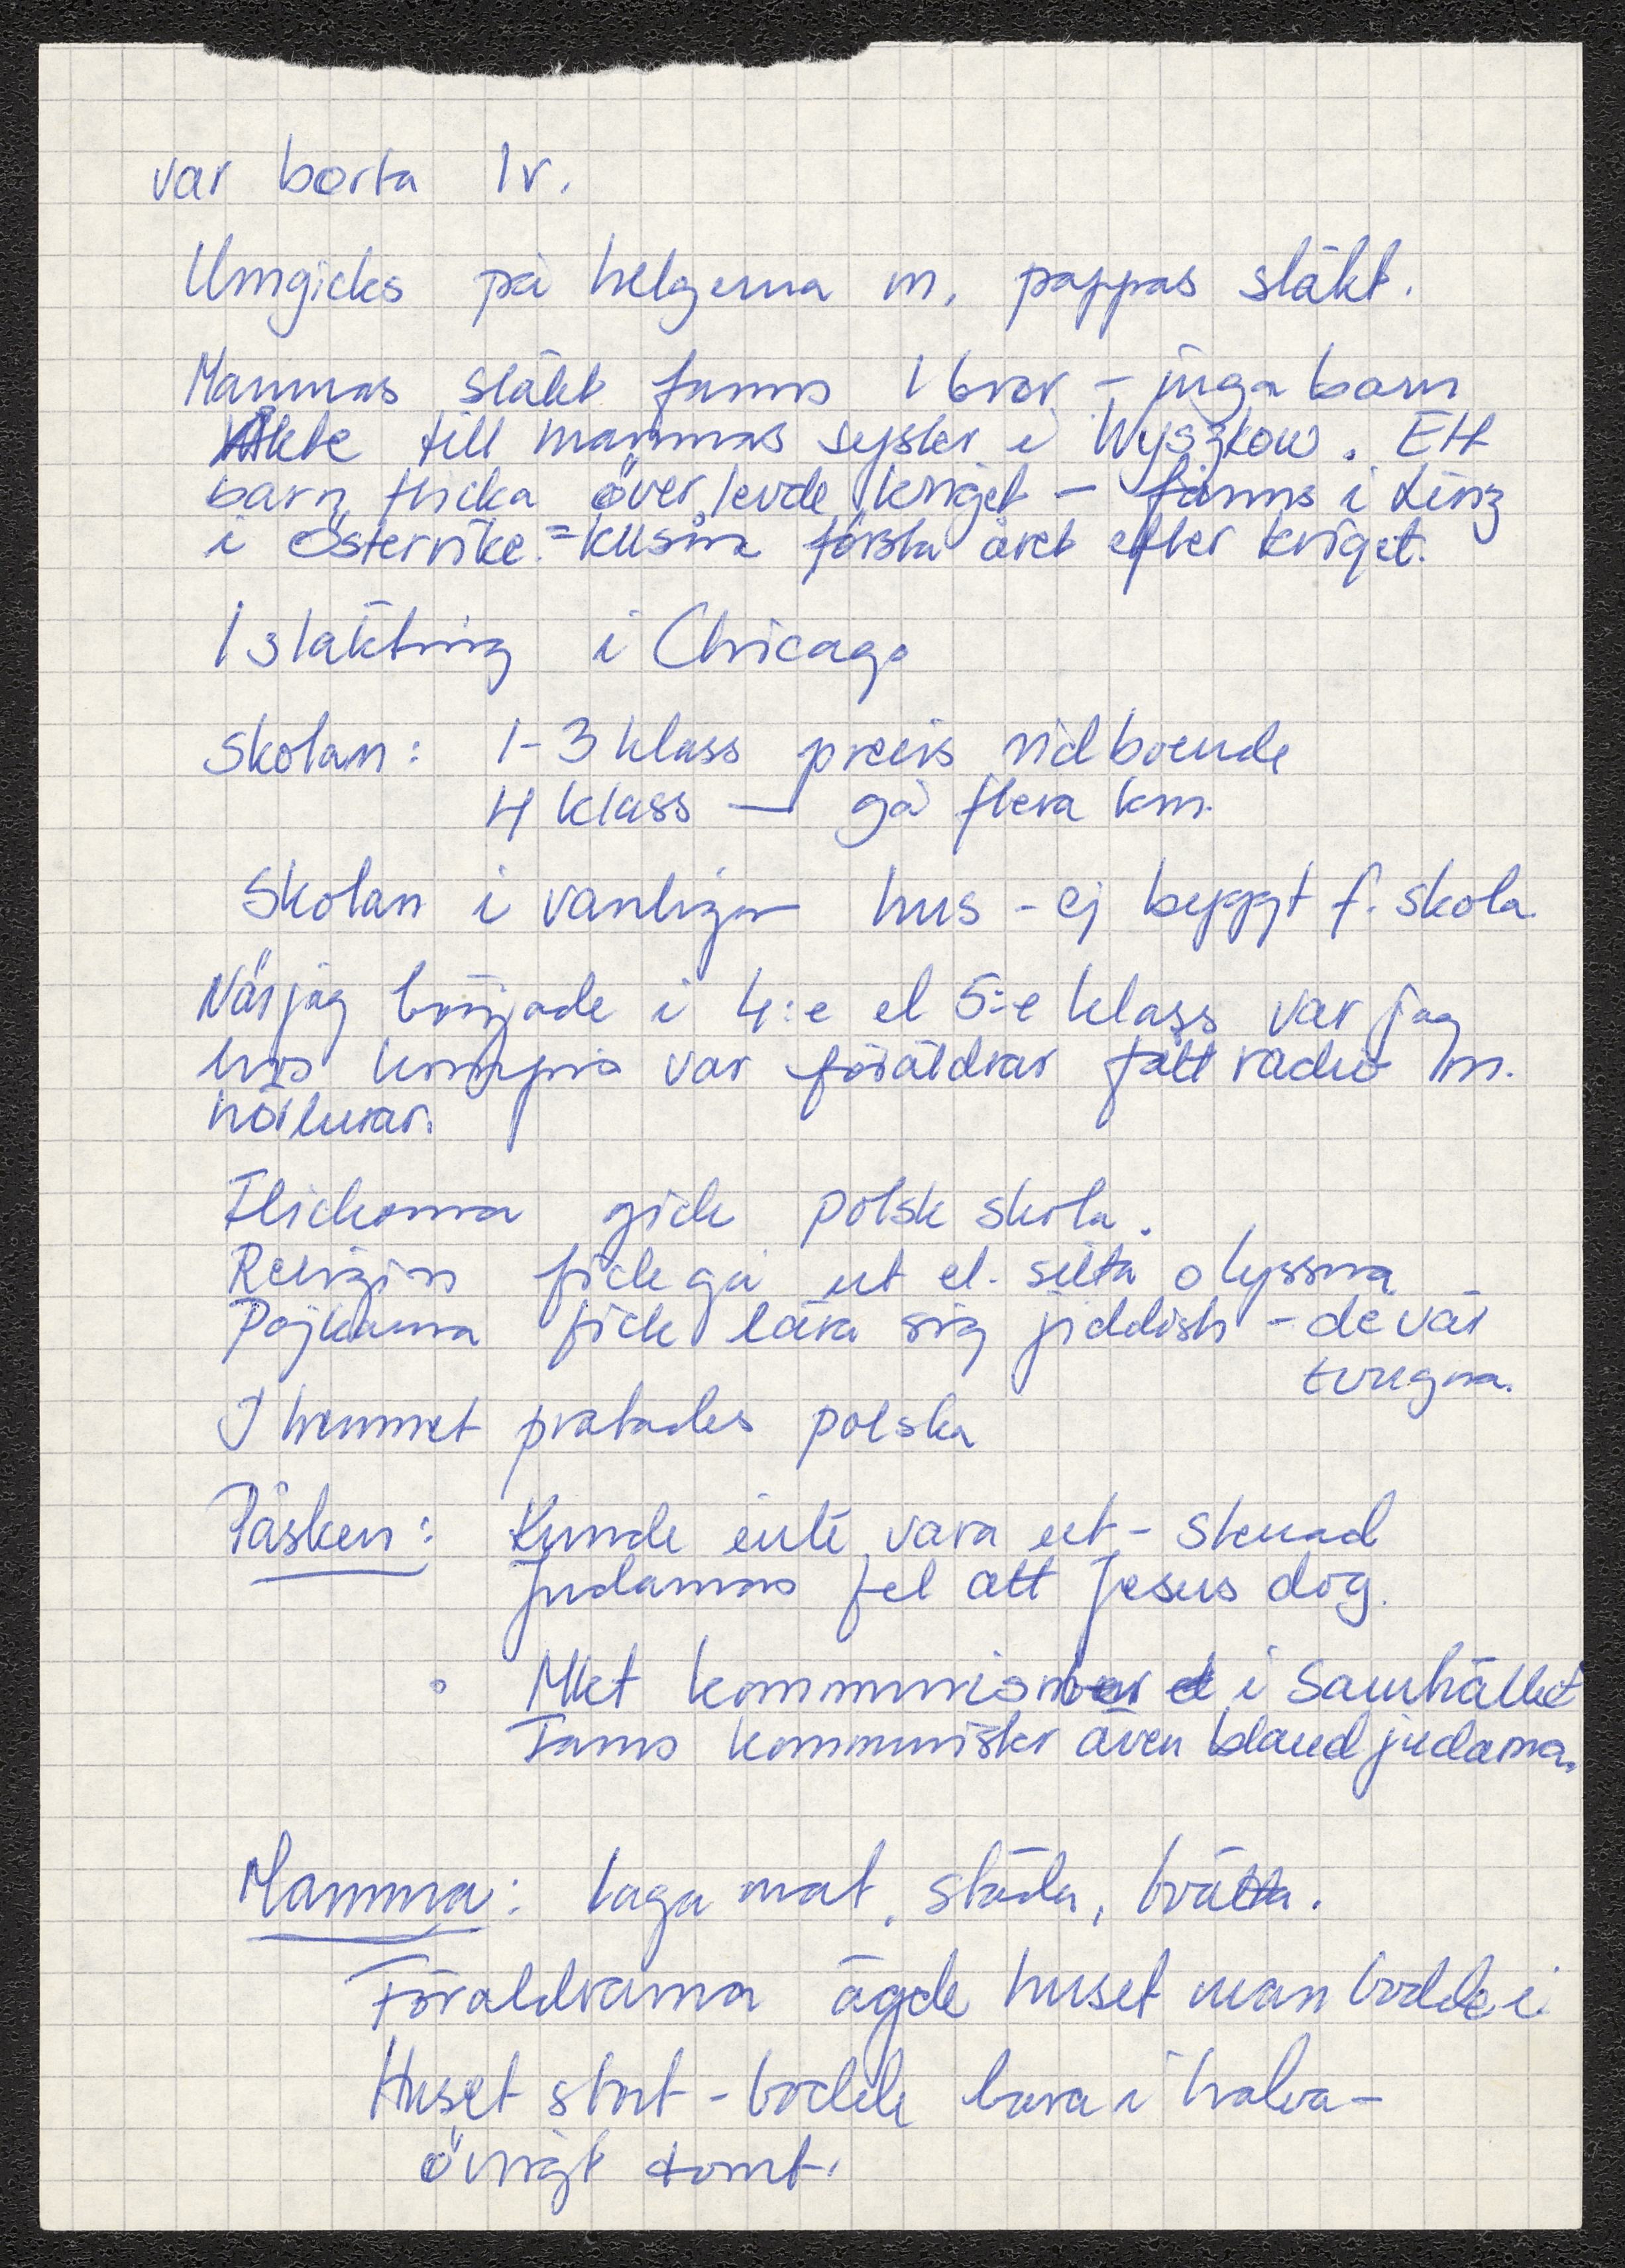 var borta 1v.
Umgicks på helgerna m. pappas släkt.
Mammas släkt fanns 1 bror - inga barn
Åkte till mammas syster i Wyszkow. Ett
barn, flicka överlevde kriget - finns i Linz
i Österrike. = kusin första året efter kriget.
1 släkting i Chicago
Skolan: 1-3 klass precis vid boende
4 klass — gå flera km.
Skolan i vanliga hus - ej byggt f. skola
När jag började i 4:e el 5:e klass var jag
hos kompis var föräldrar fått radio m.
hörlurar.
Flickorna gick polsk skola.
Religion fick gå ut el. sitta o lyssna
Pojkarna fick lära sig jiddish - de var
tvugna.
I hemmet pratades polska
Påsken: Kunde inte vara ut - stenad
Judarnas fel att Jesus dog.
Mkt kommunismen i Samhället
Fanns kommunister även bland judarna.
Mamma: laga mat, städa, tvätta.
Föräldrarna ägde huset man bodde i.
Huset stort - bodde bara i halva -
övrigt tomt.